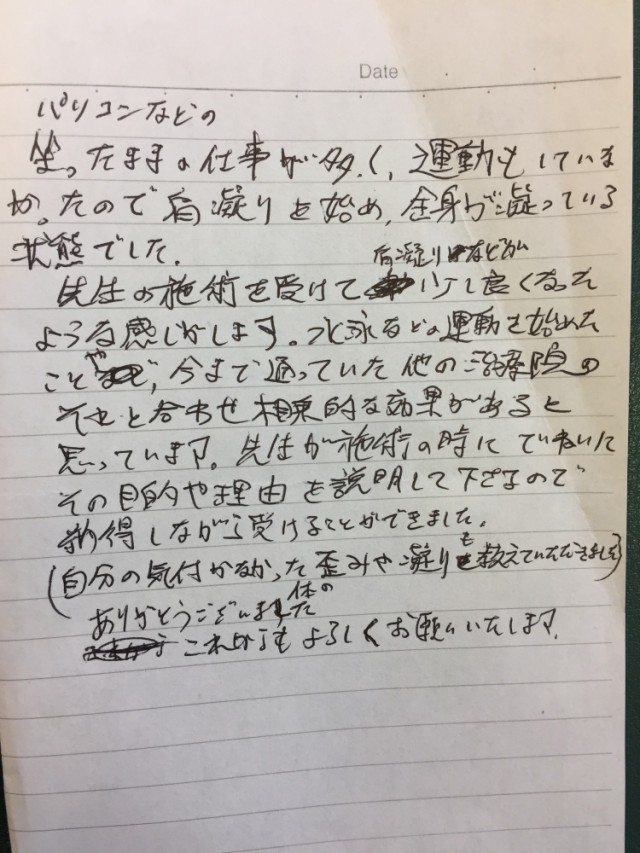 Date
パソコンなどの
坐ったままの仕事が多く、運動もしていな
かったので肩凝りを始め、全身が凝っている
状態でした。
肩凝りなどが
先生の施術を受けて少し良くなった
ような感じがします。水泳などの運動を始めた
ことや、今まで通っていた他の治療院の
それと合わせ相乗的な効果があると
思っています。先生が施術の時にていねいに
その目的や理由を説明して下さるので
納得しながら受けることができました。
(自分の気付かなかった体の歪みや凝りも教えていただきました)
ありがとうございました
これからもよろしくお願いいたします。